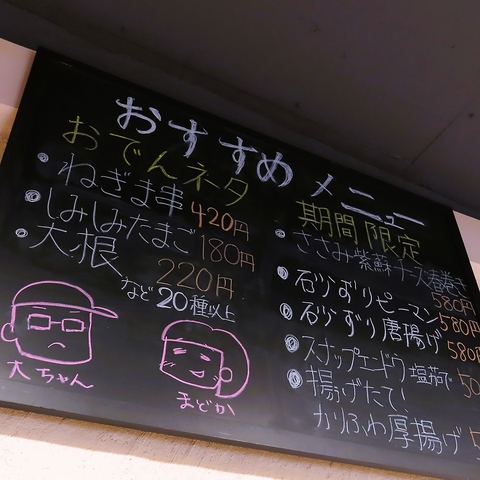 おすすめメニュー
おでんネタ
・ねぎま串 420円
◎しみしみたまご 180円
・大根 220円
など20種以上
大ちゃん
まどか
期間限定
◎ささみ紫蘇チーズ春巻き 580円
◎石ずりピーマン 580円
◎石ずり唐揚げ 580
◎スナップエンドウ塩茹で
◎揚げたて!
かりふわ厚揚げ